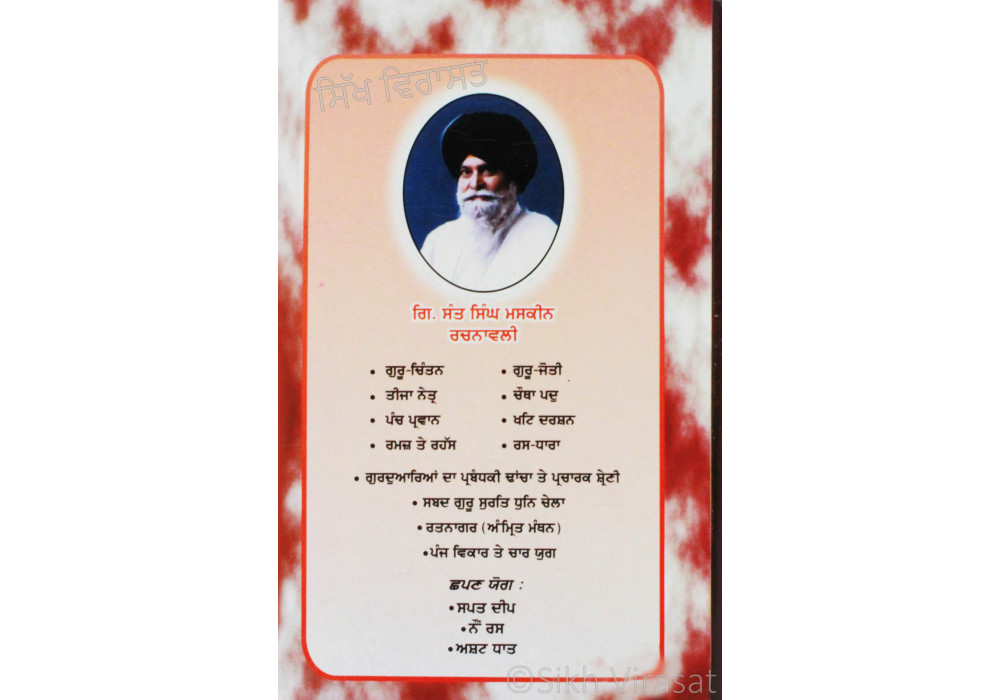 ਸਿੱਖ ਵਿਰਾਸਤ
ਗਿ. ਸੰਤ ਸਿੰਘ ਮਸਕੀਨ
ਰਚਨਾਵਲੀ
• ਗੁਰੂ-ਚਿੰਤਨ • ਗੁਰੂ-ਜੋਤੀ
• ਤੀਜਾ ਨੇਤ੍ਰ • ਚੌਥਾ ਪਦੁ
• ਪੰਚ ਪ੍ਰਵਾਨ • ਖਟਿ ਦਰਸ਼ਨ
• ਰਮਜ਼ ਤੇ ਰਹੱਸ • ਰਸ-ਧਾਰਾ
• ਗੁਰਦੁਆਰਿਆਂ ਦਾ ਪ੍ਰਬੰਧਕੀ ਢਾਂਚਾ ਤੇ ਪ੍ਰਚਾਰਕ ਸ਼੍ਰੇਣੀ
• ਸਬਦ ਗੁਰੂ ਸੁਰਤਿ ਧੁਨਿ ਚੇਲਾ
• ਰਤਨਾਗਰ (ਅੰਮ੍ਰਿਤ ਮੰਥਨ)
• ਪੰਜ ਵਿਕਾਰ ਤੇ ਚਾਰ ਯੁਗ
ਛਪਣ ਯੋਗ :
• ਸਪਤ ਦੀਪ
• ਨੌਂ ਰਸ
• ਅਸ਼ਟ ਧਾਤ
©Sikh Virasat